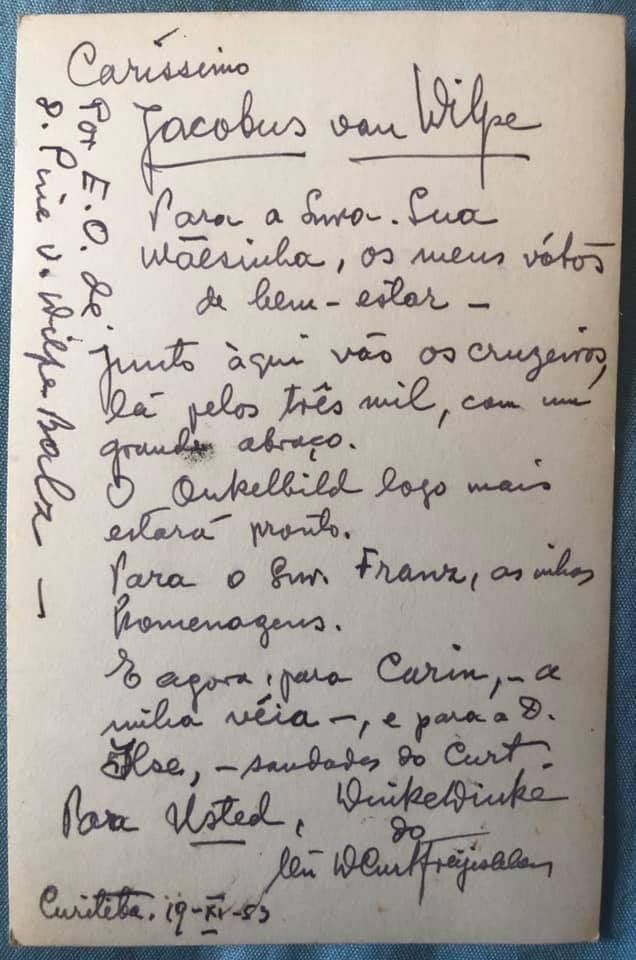 Caríssimo
Jacobus van Wilpe
Para a Snra. Sua
Mãesinha, os meus vótos
de bem-estar -
Junto àqui vão os cruzeiros,
lá pelos três mil, com um
grande abraço.
O Onkelbild logo mais
estará pronto.
Para o Snr. Franz, as minhas
homenagens.
E agora, para Carin, - a
minha véia -, e para a D.
Ilse, - saudades do Curt.
Para Usted, WinkeWinke
do
W Curt
Curitiba. 19-XI-53
Por E. O. de
D. Pine v. Wilpe Balz -